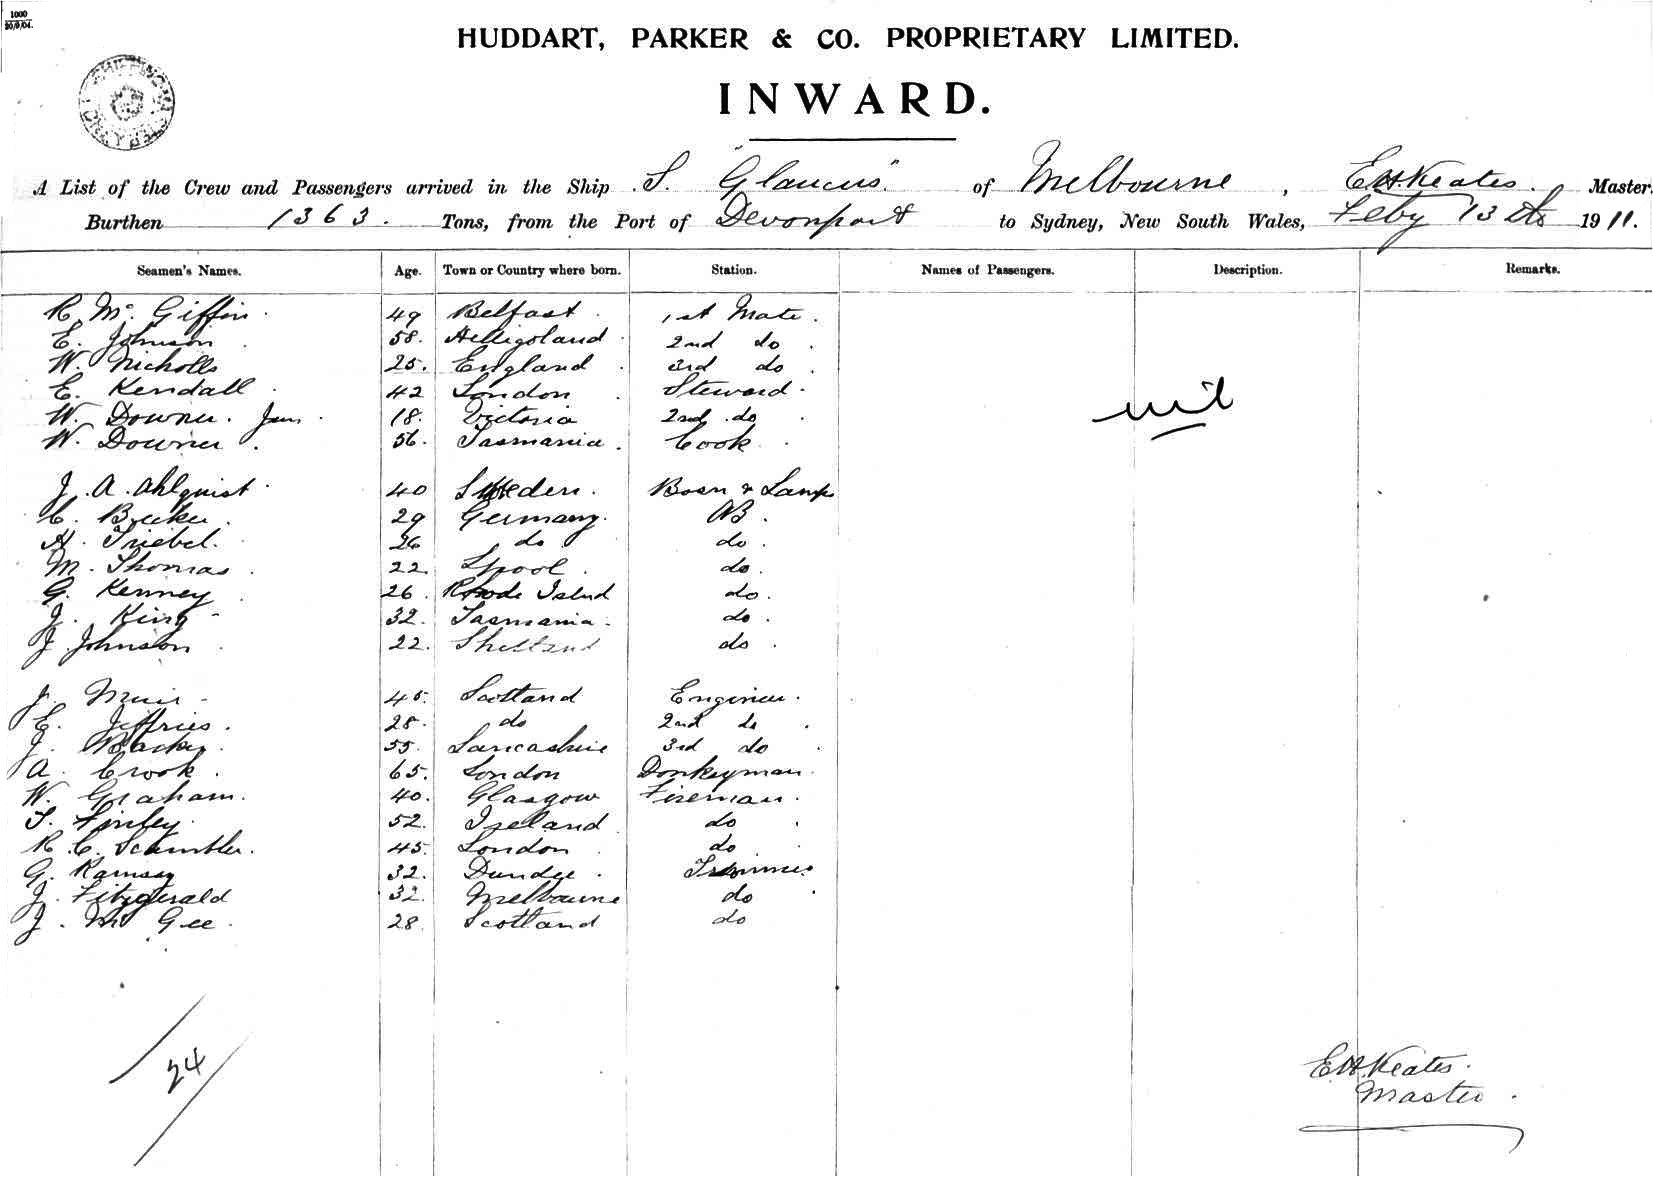 1000
20/9/04.
HUDDART, PARKER & CO. PROPRIETARY LIMITED.
INWARD.
A List of the Crew and Passengers arrived in the Ship S. "Glaucus" of Melbourne, E.H. Keates. Master.
Burthen 1363. Tons, from the Port of Devonport to Sydney, New South Wales, Feby 13th 1911.
Seamen's Names. Age. Town or Country where born. Station. Names of Passengers. Description. Remarks.
R. Mc. Giffin. 49 Belfast. 1st Mate.
E. Johnson 58. Helligoland 2nd do.
W. Nicholls 25. England 3rd do.
E. Kendall 42 London Steward.
nil
W. Downer. Jun 18. Victoria 2nd do.
W. Downer 56. Tasmania. Cook.
J. A. Ahlquist. 40 Sweden. Bosn & Lamps
C. Becker. 29 Germany. AB.
H. Triebel. 26 do do.
M. Thomas. 22. Lpool. do.
G. Kenney 26. Rhode Island do.
J. King 32. Tasmania. do.
J Johnson 22. Shetland do.
J. Muir 45. Scotland Engineer.
E. Jeffries. 28. do 2nd do.
J. 55. Lancashire 3rd do.
A. Crook. 65. London Donkeyman.
W. Graham. 40. Glasgow Fireman.
T. Finley. 52. Ireland do.
R. C. Scambler. 45. London do.
G. Ramsay 32. Dundee. Trimmer.
J. Fitzgerald 32. Melbourne do.
J. Mc Gee. 28. Scotland do
24
E.H. Keates.
Master.